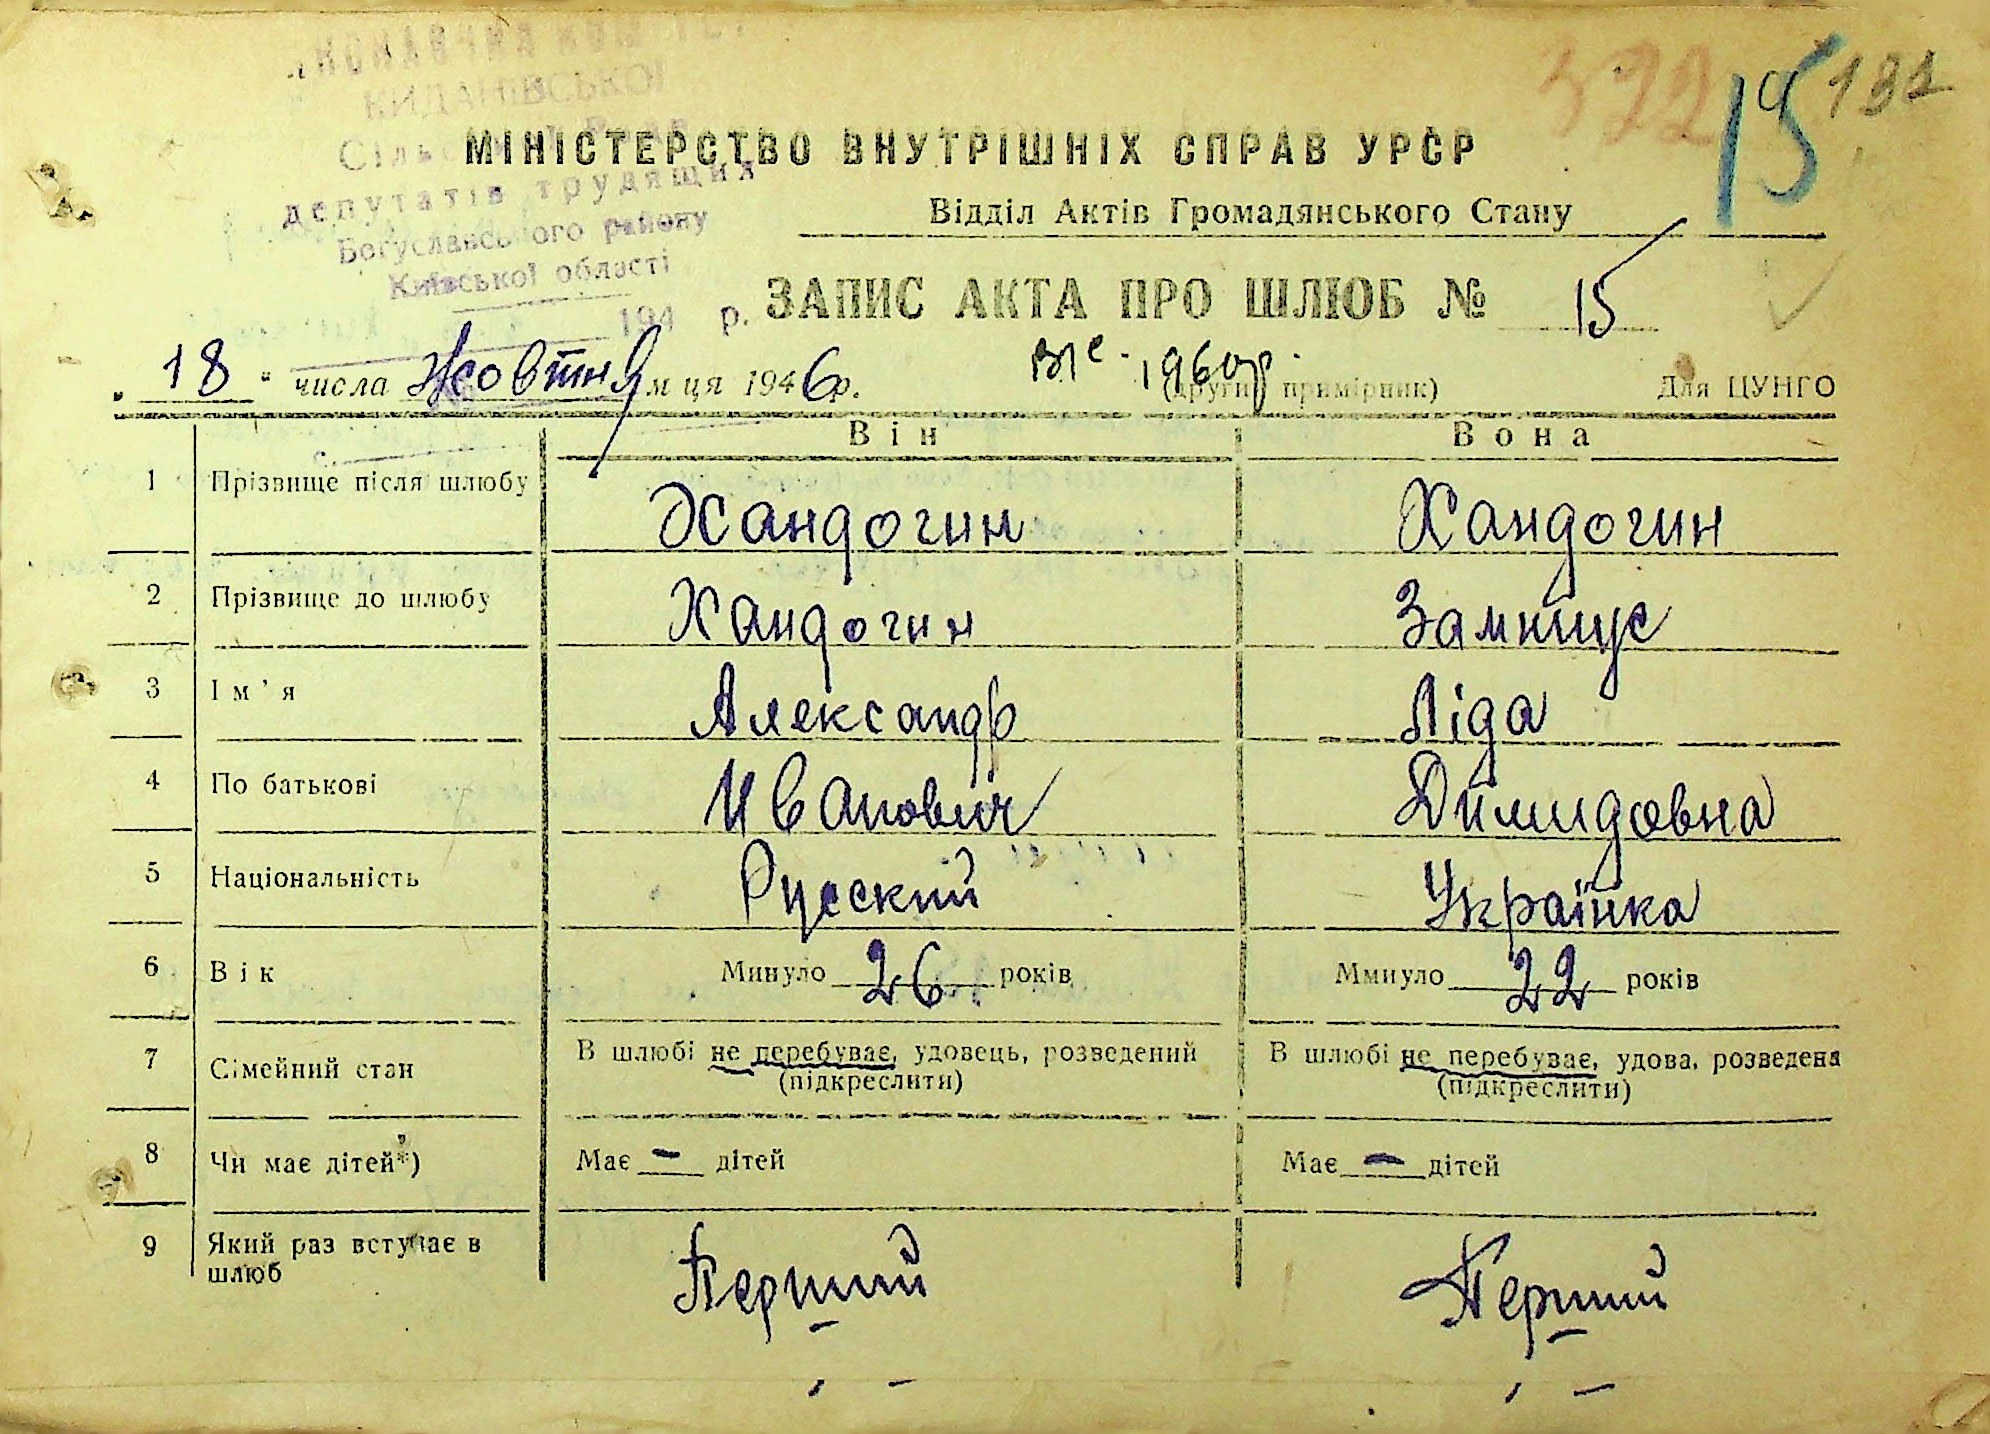 КИДАНІВСЬКОЇ
депутатів трудящих
Богуславського району
Київської області
194 р.
322 15 131
МІНІСТЕРСТВО ВНУТРІШНІХ СПРАВ УРСР
Відділ Актів Громадянського Стану
ЗАПИС АКТА ПРО ШЛЮБ № 15
„ 18 “ числа Жовтня м ця 1946 р. 1960р. (други примірник) Для ЦУНГО
Він Вона
1 Прізвище після шлюбу Хандогин Хандогин
2 Прізвище до шлюбу Хандогин
3 Ім’я Александр Ліда
4 По батькові Иванович Димидовна
5 Національність Русский Українка
6 Вік Минуло 26 років Ммнуло 22 років
7 Сімейний стан В шлюбі не перебуває, удовець, розведений В шлюбі не перебуває, удова, розведена
(підкреслити) (підкреслити)
8 Чи має дітей*) Має – дітей Має – дітей
9 Який раз вступає в
шлюб Перший Перший